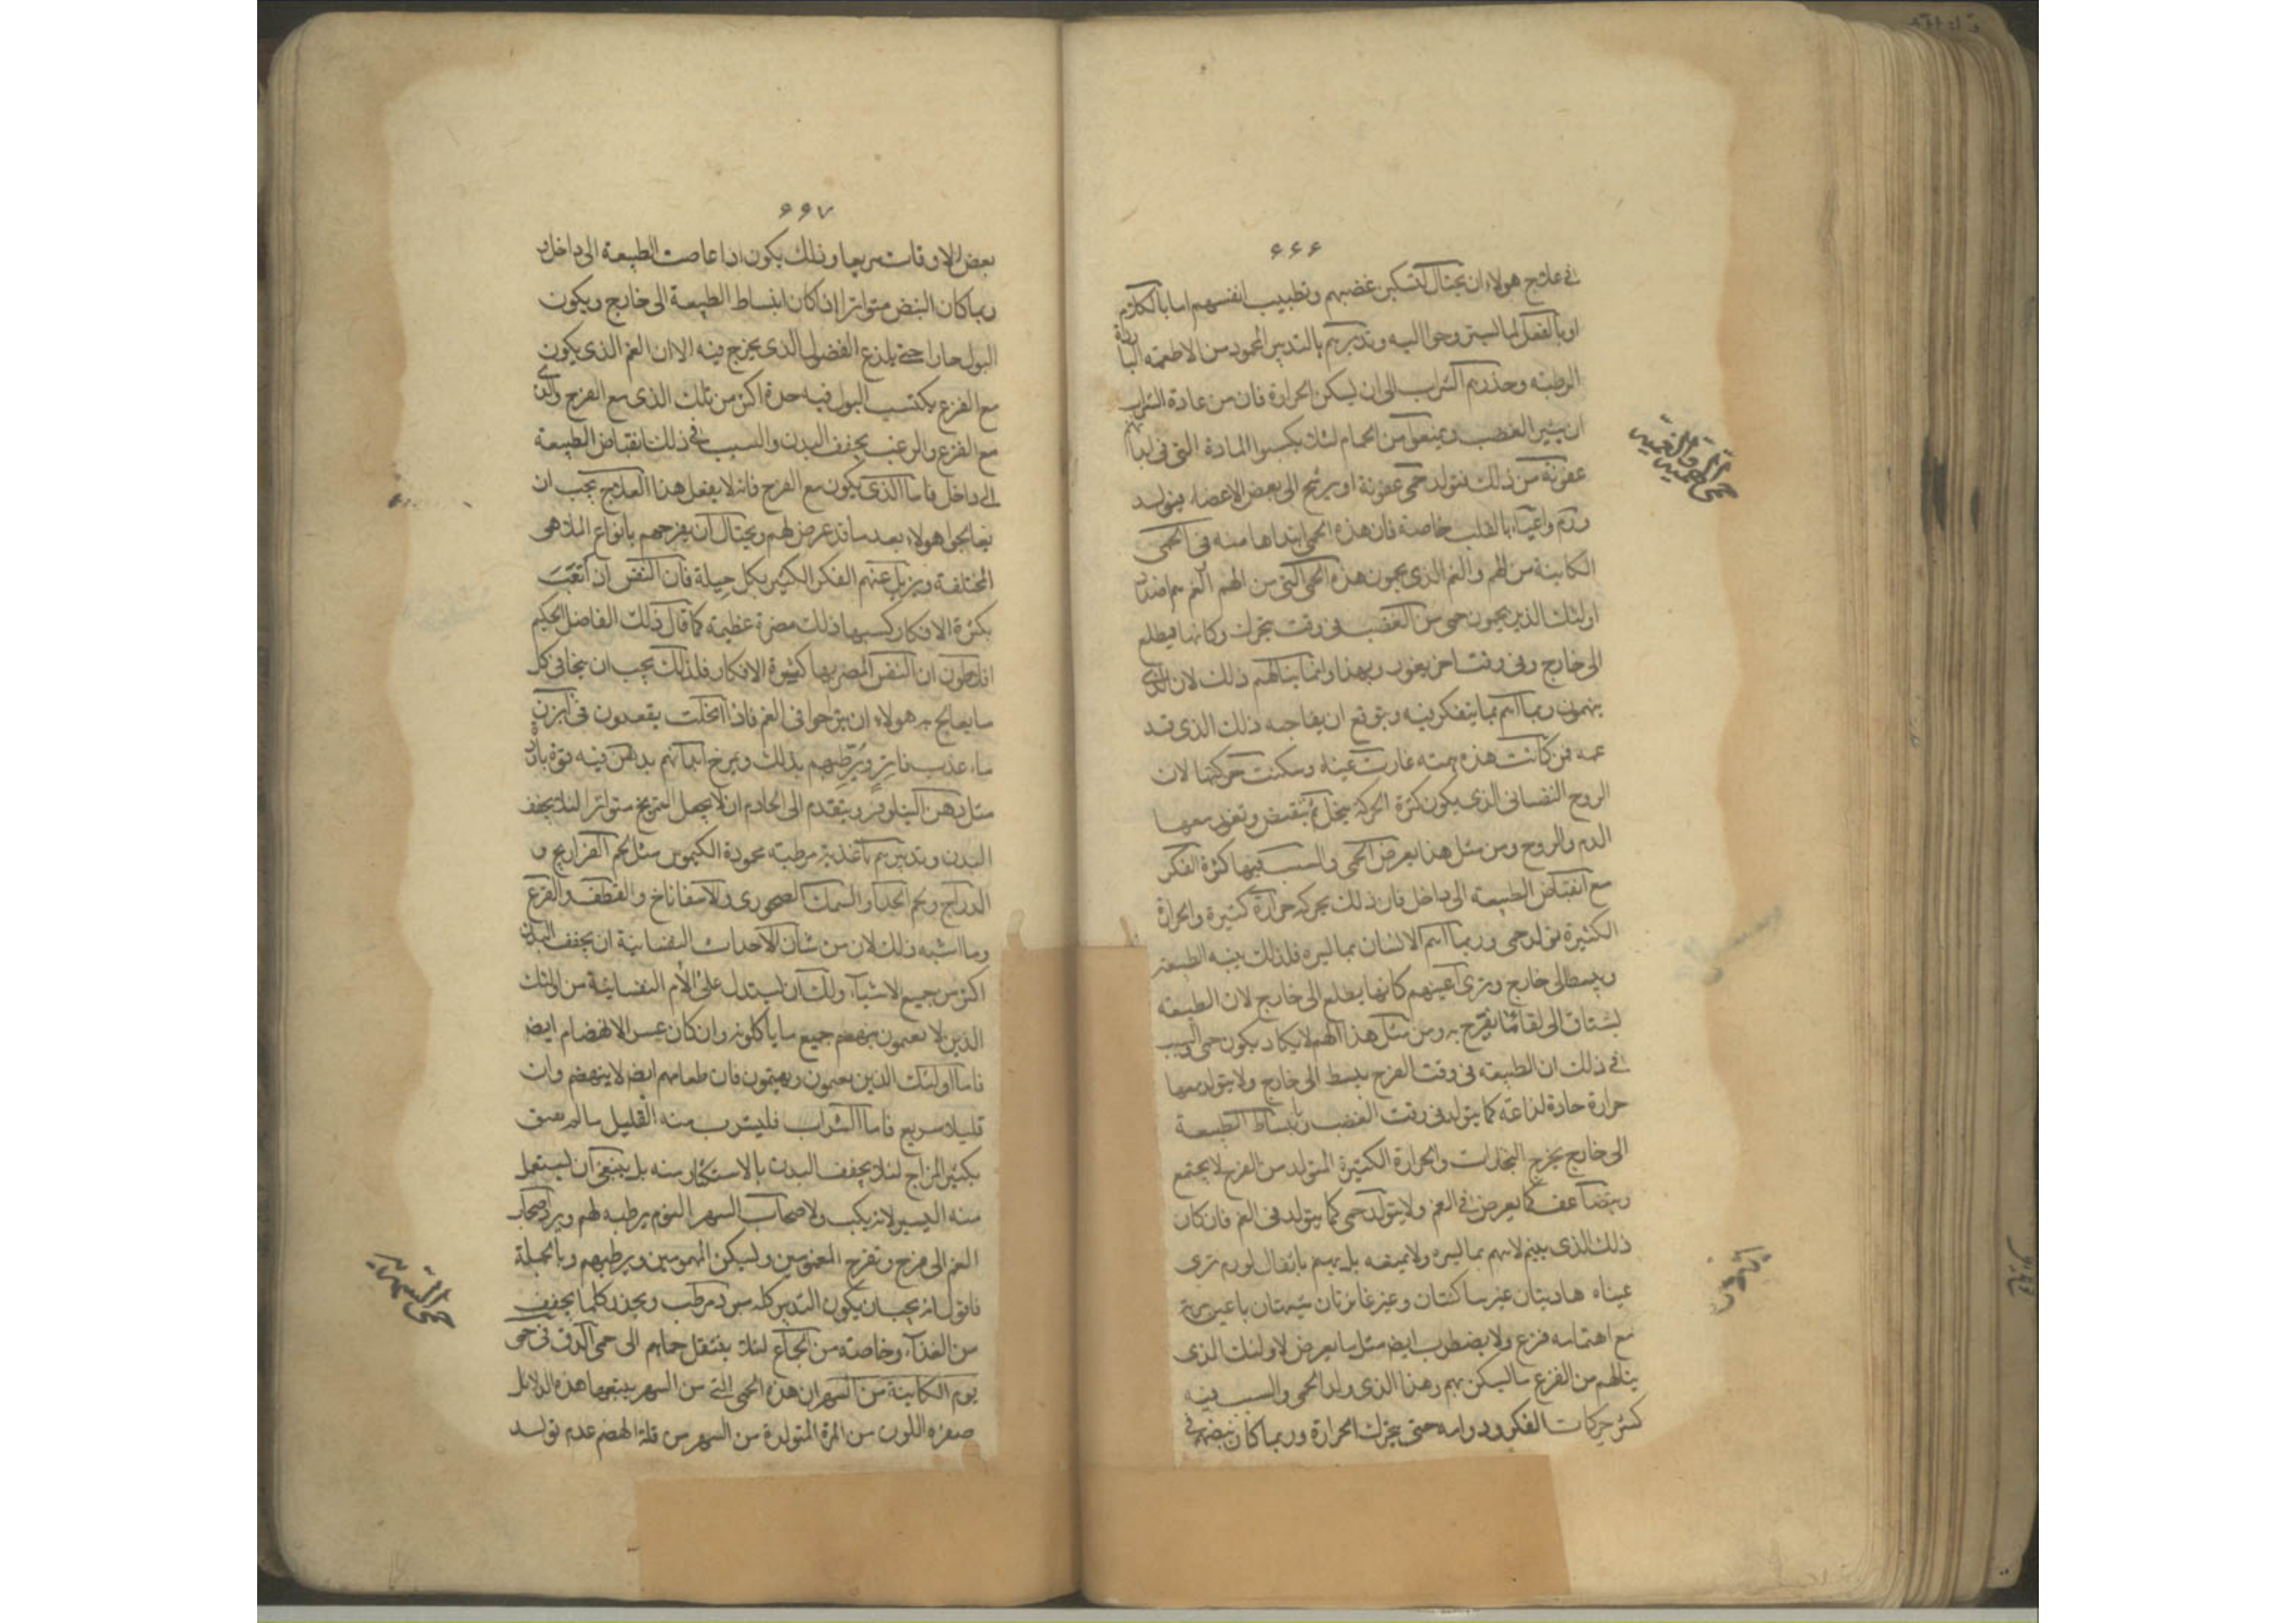 ٦٦٦
في علاج هولاء ان يحتال لتسكين غضبهم وتطييب انفسهم اما بالكلام
او بالفعل لما يستروحوا اليه وتدبيرهم بالتدبير المحمود من الاطعمه الباردة
الرطبه وحذرهم الشراب الى ان يسكن الحرارة فان من عادة الشراب
ان يثير الغضب ويمنعوا من الحمام لئلا يكسبوا المادة التي في ابدانهم
عفونة من ذلك فتولد حمى عفونة او يرشح الى بعض الاعضاء فيتولد
ورم واعياء بالقلب خاصة فان هذه الحمى ابتداها منه في الحمى
الكاينة من الهم والغم الذي يحمون هذه الحمى التي من الهم الغم هم ضد
اولئك الذين يحمون حمى من الغضب في وقت يتحرك وكانها فيطلع
الى خارج وفي وقت اخر يغور ويهدا وانما ينالهم ذلك لان الذي
يهمون ربما اهم بما يتفكر فيه ويتوقع ان يفاجيه ذلك الذي قد
عمه فمن كانت هذه همته غارت عيناه وسكنت حركتها لان
الروح النفساني الذي يكون كثرة الحركة يتحلل ثم ينقبض وتغور معها
الدم والروح ومن مثل هذا يعرض الحمى والسبب فيها كثرة الفكر
مع انقباض الطبيعة الى داخل فان ذلك يحركه حرارة كثيرة والحرارة
الكثيرة تولد حمى وربما اهم الانسان بما يسره فلذلك ينبه الطبيعة
ويبسط الى خارج وترى اعينهم كانها يطلع الى خارج لان الطبيعه
يشتاق الى لقا ما يفرح به ومن مثل هذا الهم لا يكاد يكون حمى والسبب
في ذلك ان الطبيعه في وقت الفرح يبسط الى خارج ولا يتولد معها
حرارة حادة لذاعة كما يتولد في وقت الغضب وبانبساط الطبيعة
الى خارج يخرج البخارات والحرارة الكثيرة المتولد من الفرح لا يجتمع
ويتضاعف كما يعرض في الغم ولا يتولد حمى كما يتولد في الغم فان كان
ذلك الذي يهم لا يهم بما يسره ولا يميته بل يهم باثقال لورم ترى
عيناه هاديتان غير ساكنتان وغير غائرتان شبيهتان باعين
مع اهتمامه فزع ولا يضطرب ايضا مثل ما يعرض لاولئك الذي
ينالهم من الفزع ما ليسكن بهم وهذا الذي ولد الحمى والسبب فيه
كثر حركات الفكر ودوامه حتى يتحرك الحرارة وربما كان نبضهم في
حمى الهمية والغمية
٦٦٧
بعض الاوقات سريعا وذلك يكون اذا غاصت الطبيعة الى داخل و
ربما كان النبض متواترا اذ كان انبساط الطبيعة الى خارج ويكون
البول حارا حتى يلذع الفضول الذي يخرج فيه الا ان الغم الذي يكون
مع الفزع يكتسب البول فيه حدة اكثر من تلك الذي مع الفرح والذي
مع الفزع والرعب يجفف البدن والسبب في ذلك انقباض الطبيعة
الى داخل فاما الذي يكون مع الفرح فانه لا يفعل هذا العلاج يجب ان
تعالجوا هولاء بعد ما قد عرض لهم ويحتال ان يفرحهم بانواع الملاهي
المختلفة ويزيل عنهم الفكر الكثير بكل حيلة فان النفس ان اتعب
بكثرة الافكار كسبها ذلك مضرة عظيمة كما قال ذلك الفاضل الحكيم
افلاطون ان النفس المضر بها كثيرة الافكار فلذلك يجب ان يتحافى كل
ما يعالج به هولاء ان يترحوا في الغم فاذا انحلت يقعدون في ابزن
ماء عذب فاتر ويرطبهم بذلك ويمرخ ابدانهم بدهن فيه قوة باردة
مثل دهن النيلوفر ويتقدم الى الخادم ان لا يجعل التمريخ متواترا لئلا يجفف
البدن وتدبيرهم باغذية مرطبه محمودة الكيموس مثل لحم الفراريج و
الدراج ولحم الجداء والسمك الصخوري والاسفاناخ والقطف والقرع
وما اشبه ذلك لان من شان الاحداث النفسانية ان يجفف البدن
اكثر من جميع الاشياء ولك ان يستدل على الالام النفسانية من اولئك
الذين لا يعمون ينهضم جميع ما ياكلونه وان كان عسر الانهضام ايضا
فاما اولئك الذين يعمون ويهتمون فان طعامهم ايضا لا ينهضم وان
قليلا سريع فاما الشراب فليشرب منه القليل
بكثير المزاج لئلا يجفف البدن بالاستكثار منه بل ينبغي ان يستعمل
منه اليسير لانه يكسب ولاصحاب السهر النوم يرطبه لهم ويرد اصحاب
الغم الى فرح وتفرح المغمومين وليسكن المهمومين ويرطبهم وبالجملة
فاقول انه يجب ان يكون التدبير كله مبرد مرطب ويحذر كلما يجفف
من الغذاء وخاصة من الجماع لئلا ينتقل حماهم الى حمى الدق في حمى
يوم الكاينة من السهر ان هذه الحمى التي من السهر يتبعها هذه الدلائل
صفره اللون من المرة المتولدة من السهر من قلة الهضم عدم تولد
حمى السهرية